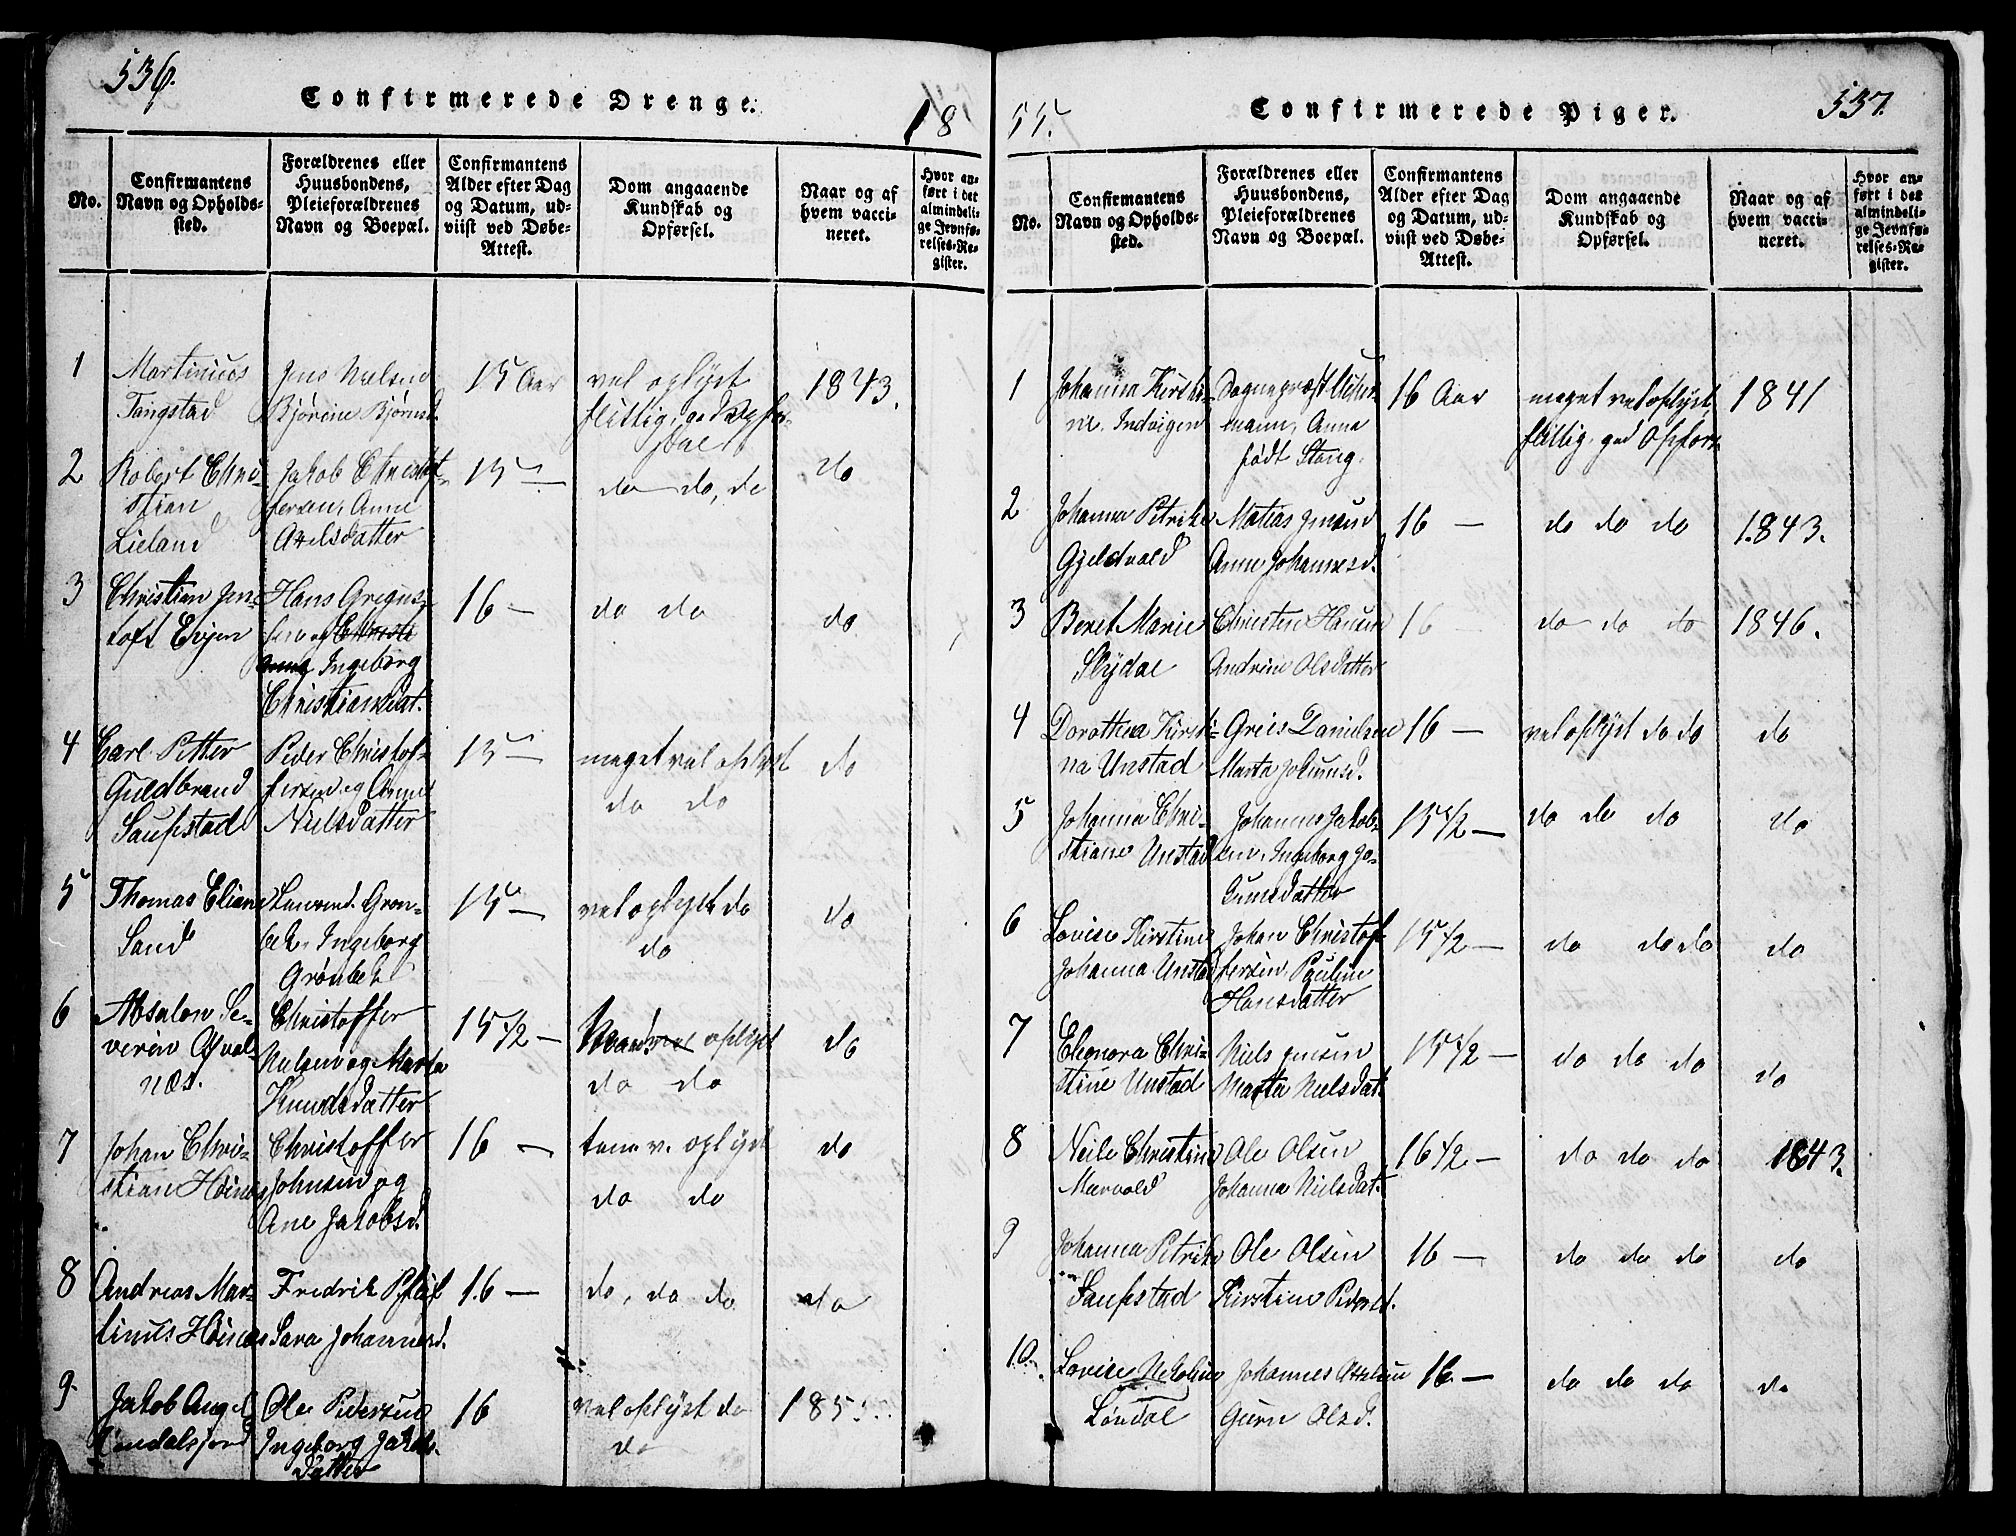 536.
Confirmerede Drenge.
18
No.
Confirmantens
Navn og Opholds-
sted.
Forældrenes eller
Huusbondens,
Pleieforældrenes
Navn og Boepæl.
Confirmantens
Alder efter Dag
og Datum, ud-
viist ved Døbe-
Attest.
Dom angaaende
Kundskab og
Opførsel.
Naar og af
hvem vacci-
neret.
Hvor an-
ført i det
almindeli-
ge Jevnfø-
relses-Re-
gister.
1
Martinius
Tangstad
Jens Nielsen
Bjørine Bjørnsd.
15 Aar
vel oplyst
flittig, god Opfør-
sel
1843.
2
Robert Chri-
stian
Lieland
Jakob Christof-
fersen, Anne
Axelsdatter
15 —
do do, do
do
3
Christian Jen-
toft Evjen
Hans Gregus-
sen og Christi
anna Ingeborg
Christiansdat.
16 —
do do
do
4
Carl Petter
Guldbrand
Saupstad
Peder Christof-
fersen og Anne
Nielsdatter
15 —
meget vel oplyst
do do
do
5
Thomas Elias
Sand
Grøn-
bek, Ingeborg
Grønbek
15 —
vel oplyst do
do
do
6
Absalon Se-
verin Qval-
næs.
Christoffer
Nielsen og Marta
Knudsdatter
15 1/2 —
oplyst
do do
do
7
Johan Chri-
stian Høines
Christoffer
Johnsen og
Ane Jakobsd.
16 —
tem. v. oplyst
do do
do
8
Andreas Mar-
tinus Høines
Fredrik
Sara Johannesd.
16 —
do, do do
do
9
Jakob Angel
Ole Pedersen
Ingeborg Jakobs-
datter
16
vel oplyst do
do
185
55.
Confirmerede Piger.
537.
No.
Confirmantens
Navn og Opholds-
sted.
Forældrenes eller
Huusbondens,
Pleieforældrenes
Navn og Boepæl.
Confirmantens
Alder efter Dag
og Datum, ud-
viist ved Døbe-
Attest.
Dom angaaende
Kundskab og
Opførsel.
Naar og af
hvem vacci-
neret.
Hvor an-
ført i det
almindeli-
ge Jevnfø-
relses-Re-
gister.
1
Johanna Kirsti-
ne, Indvigen
Sognepræst
mann, Anna
født Stang.
16 Aar
meget vel oplyst
flittig, god Opførs
1841
2
Johanna Petrike
Gjeldvold
Matias Jensen
Anne Johannesd.
16 —
do do do
1843.
3
Beret Marie
Slydal
Christen Hansen
Andrine Olsdatter
16 —
do do do
1846.
4
Dorothea Kirsti-
na Unstad
Greis Danielsen
Marta
16 —
vel oplyst do do
do
5
Johanna Chri-
stiane Unstad
Johannes Jakob-
sen, Ingeborg Jo-
15 1/2 —
do do do
do
6
Lovise Kirstine
Johanna Unstad
Johan Christof-
fersen Pauline
Hansdatter
15 1/2 —
do do do
do
7
Eleonora Chri-
stine Unstad
Niels Jensen
Marta Nielsdat.
15 1/2 —
do do do
do
8
Neile Christine
Mærvold
Ole Olsen
Johanna Nielsdat.
16 1/2 —
do do do
1843.
9
Johanna Petrike
Saupstad
Ole Olsen
Kirstine Pedersd.
16 —
do do do
do
10.
Lovise
Løndal
Johannes
Guru Olsd.
16 —
do do do
do